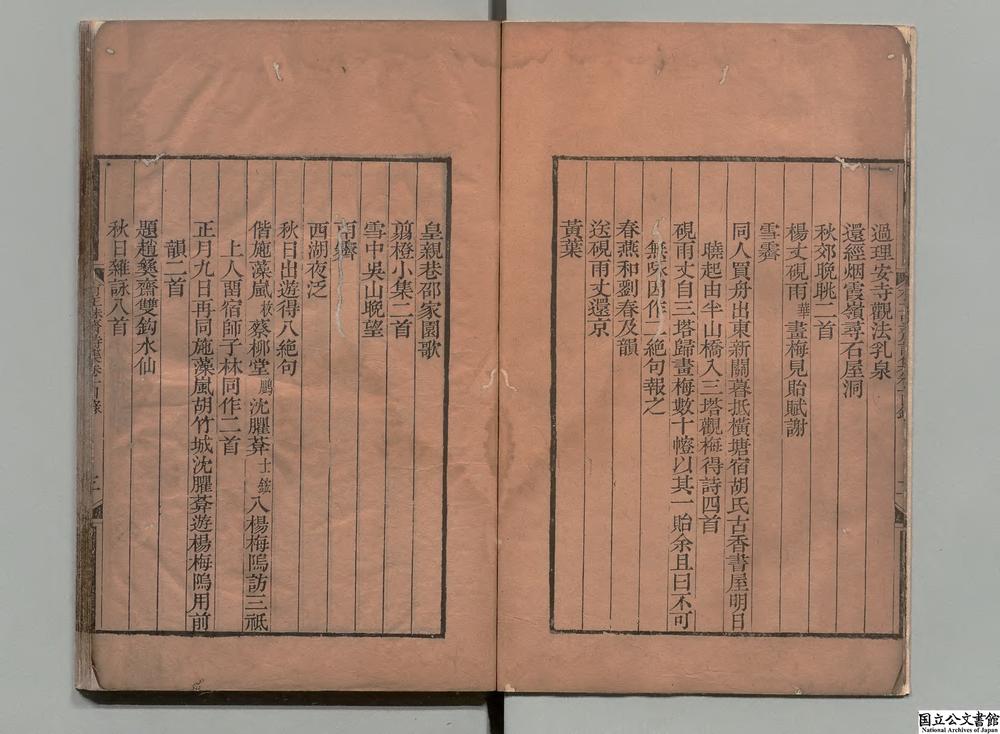 過理安寺觀法乳泉
還經烟霞嶺尋石屋洞
秋郊晚眺二首
楊丈硯雨華畫梅見貽賦謝
雪霽
同人買舟出東新關暮抵橫塘宿胡氏古香書屋明日
曉起由半山橋入三塔觀梅得詩四首
硯雨丈自三塔歸畫梅數十幀以其一貽余且曰不可
無咏因作二絕句報之
春燕和劉春及韻
送硯雨丈還京
黃葉
皇親巷邵家園歌
翦橙小集二首
雪中吳山晚望
雨霽
西湖夜泛
秋日出遊得八絕句
偕施藻嵐蔡柳堂鵬沈臞葊士鋐入楊梅隖訪三祇
上人畱宿師子林同作二首
正月九日再同施藻嵐胡竹城沈臞葊遊楊梅隖用前
韻二首
題趙彝齋雙鈎水仙
秋日雜詠八首
三
国立公文書館
National Archives of Japan